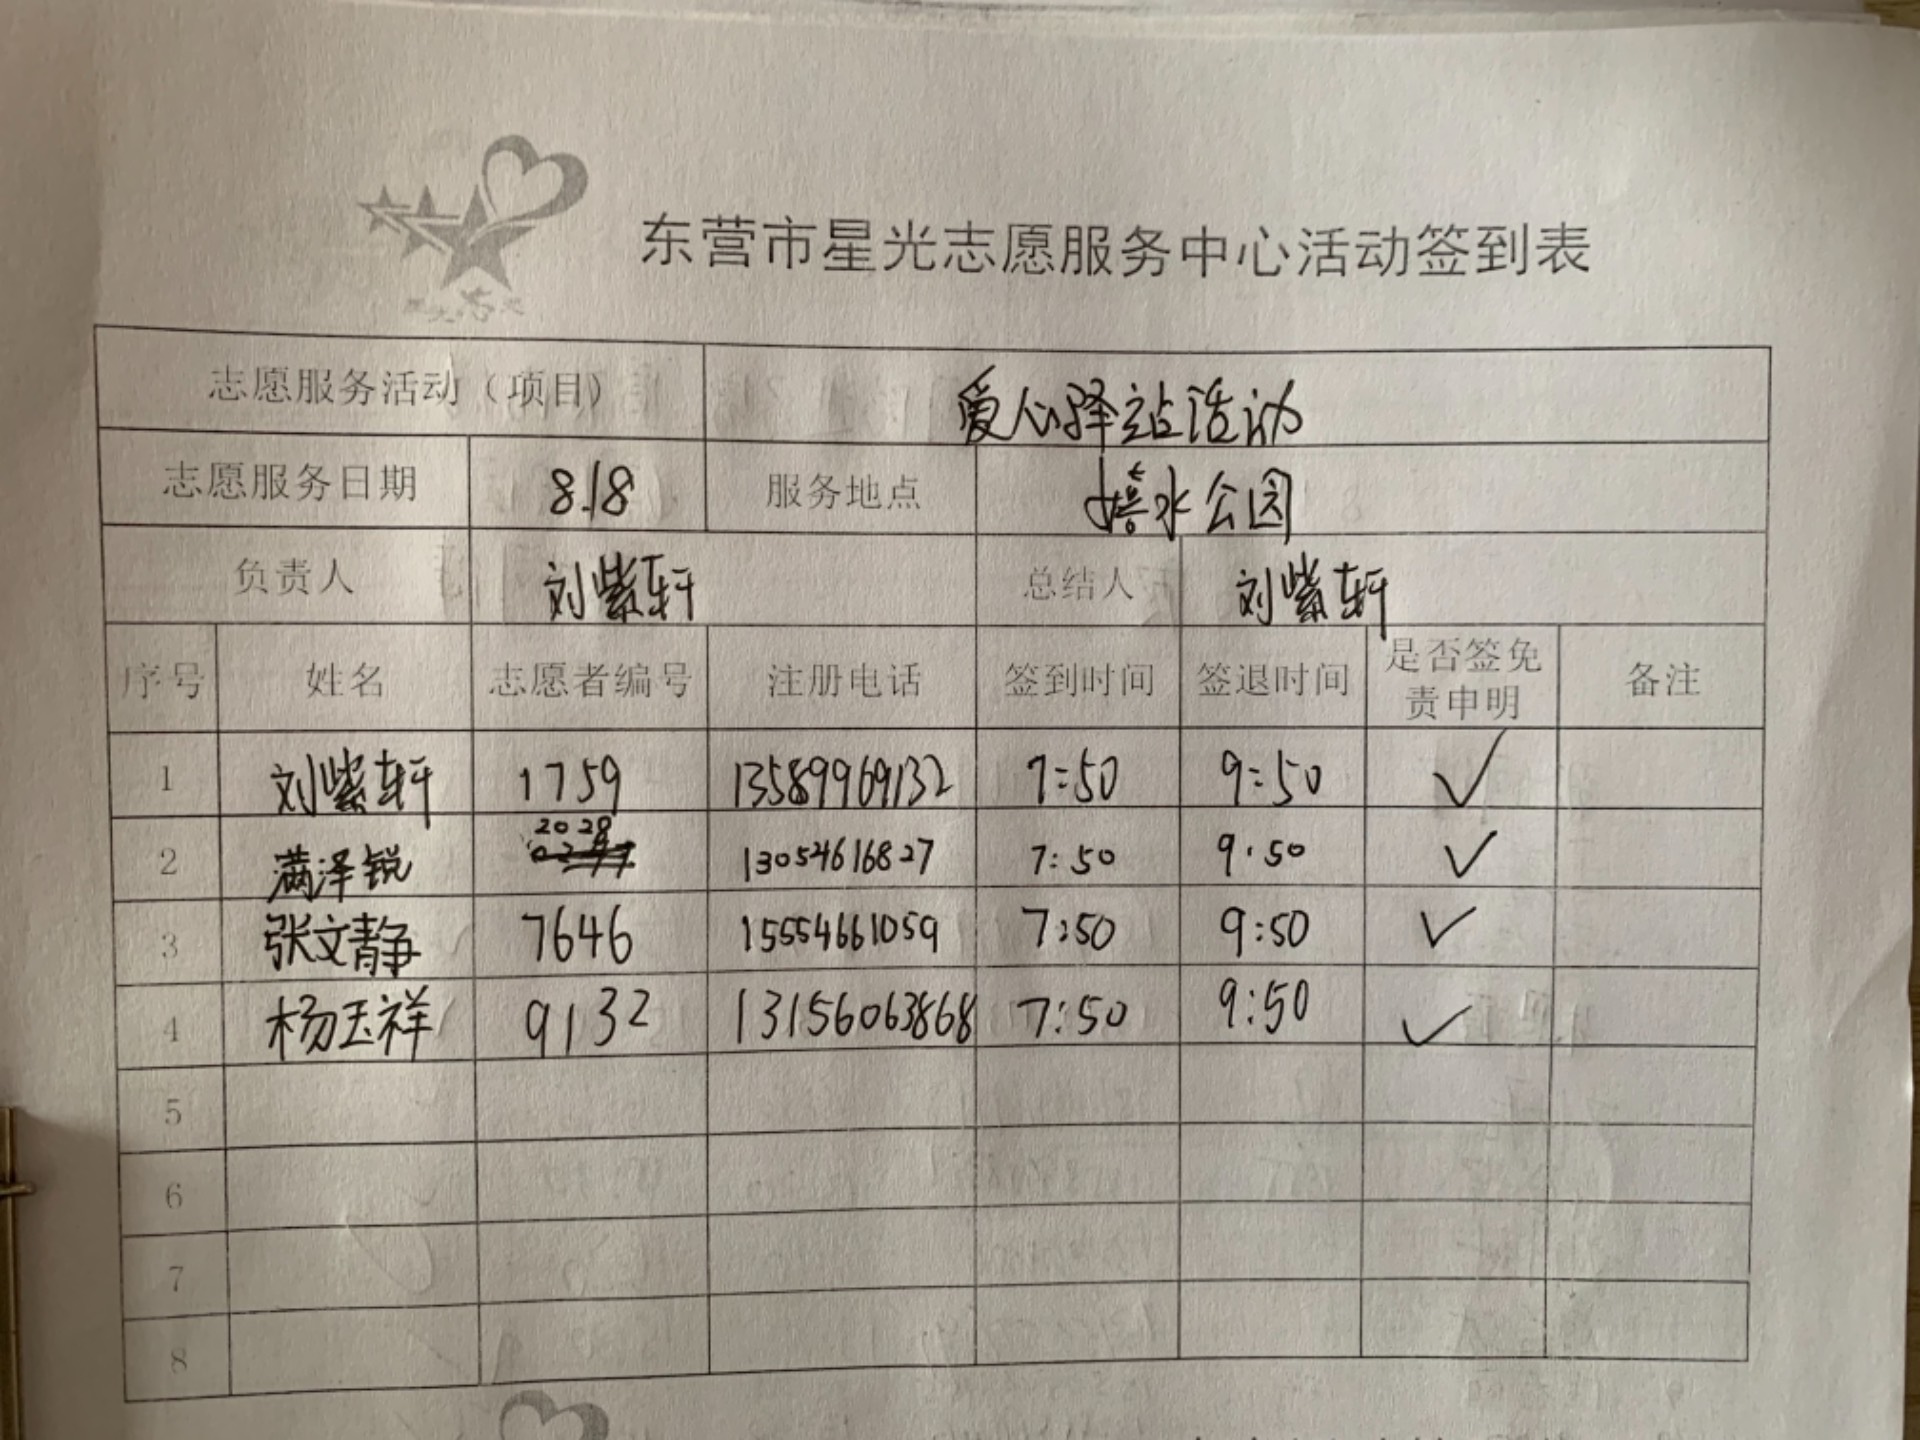 东营市星光志愿服务中心活动签到表
志愿服务活动（项目） 爱心驿站活动
志愿服务日期 8.18 服务地点 水公园
负责人 刘紫轩 总结人 刘紫轩
序号 姓名 志愿者编号 注册电话 签到时间 签退时间 是否签免责申明 备注
1 刘紫轩 1759 13589969132 7:50 9:50 ✓
2 满泽锐 2028 13054616827 7:50 9:50 ✓
3 张文静 7646 15554661059 7:50 9:50 ✓
4 杨玉祥 9132 13156063868 7:50 9:50 ✓
5
6
7
8